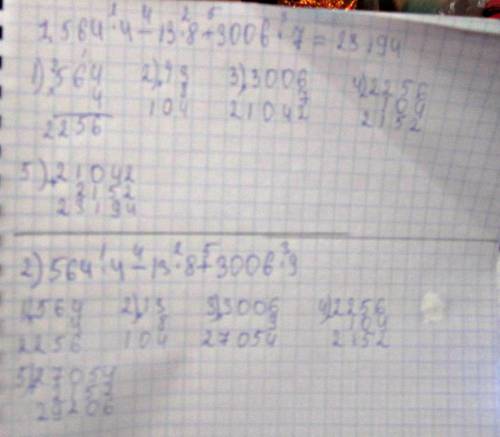 1. 564·4-13·8+3006·7=23194
1) 564 2) 13 3) 3006 4) 2256
4 8 7 104
2256 104 21042 2152
5) 21042
2152
23194
2) 564·4-13·8+3006·9
1) 564 2) 13 3) 3006 4) 2256
4 8 9 104
2256 104 27054 2152
5) 27054
2152
29206